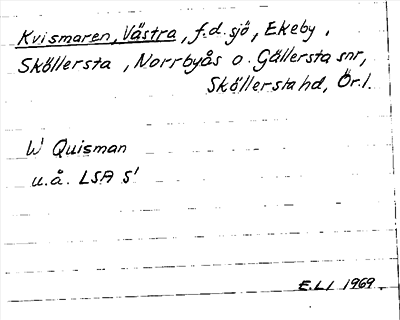 Kvismaren, Västra, f.d. sjö, Ekeby,
Sköllersta, Norrbyås o. Gällersta snr,
Sköllersta hd, Ör. l.
W Quisman
u.å. LSA S1
E.LI 1969.